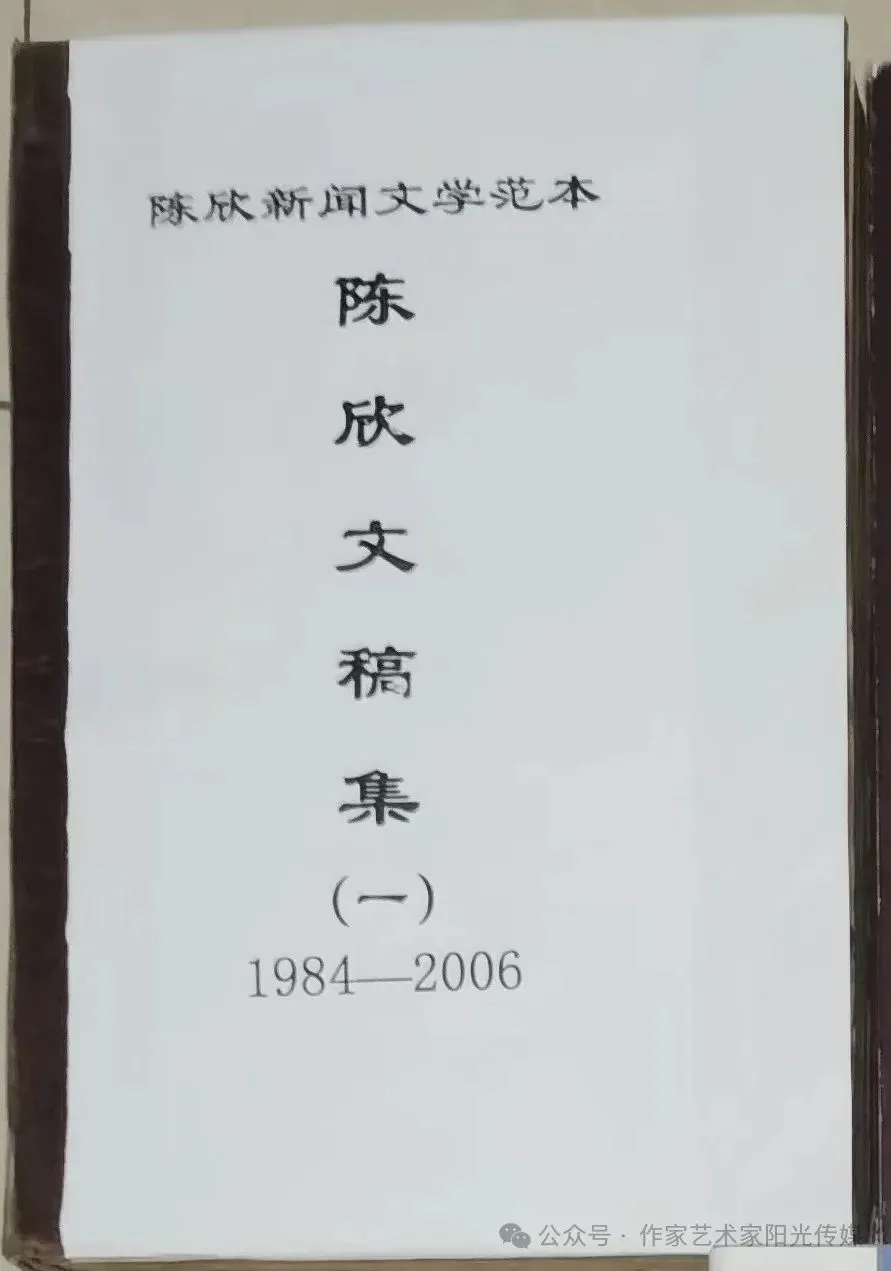 陈欣新闻文学范本
陈
欣
文
稿
集
（一）
1984—2006
公众号 · 作家艺术家阳光传媒